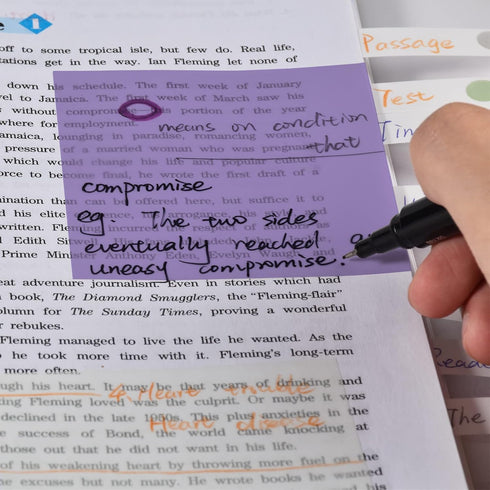 e 1
off to some tropical isle, but few do. Real life,
tations get in the way. Ian Fleming let none of
down his schedule. The first week of January
vel to Jamaica. The first week of March saw his
s without compromise this portion of the year
where for employment.
Jamaica, lounging in paradise, romancing women,
pressure of a married woman who was pregnant
which would change his life and popular culture
orce to become final, he wrote the first draft of a
means on condition
that
compromise
eg. The two sides
eventually reached
uneasy compromise.
mination than can be offered here, but suffice it to
d his elite
written. Fleming incurred the respect of authors as
d Edith
Prime Minister Anthony Eden, Evelyn Waugh, and
eat adventure journalism. Even in stories which had
book, The Diamond Smugglers, the "Fleming-flair"
olumn for The Sunday Times, proving a wonderful
r rebukes.
Fleming managed to live the life he wanted. As the
o he took more time with it. Fleming's long-term
more often.
ugh his heart. It may be that years of drinking and
ing Fleming loved was the culprit. Or maybe it was
declined in the late 1950s. This plus anxieties in the
e success of Bond, the world came knocking at
those out that he did not want in his life.
of his weakening heart by throwing more fuel on the
he excuses but not many. He wrote books he wanted
& Heart trouble
Heart disease
Passage
Test
Tim
Reade
The